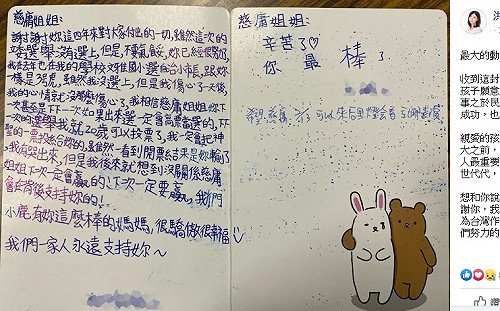 慈庸姐姐:
謝謝妳這四年來對大家付出的一切,雖然這次的
委選舉沒選上,但是,不要氣餒,妳已經很努力
我去年也在我的學校文雅國小選自治小市長,跟妳
一樣是3號,雖然我沒選上,但是我傷心了一天後,
我的心情就沒那麼傷心了,我相信慈庸姐姐妳下
次甚至是下一次如果出來選一定會高票當選的,下
次的選舉我就20歲可以投票了,我一定會把神
聖的一票投給妳的,雖然一看到開票結果是妳輸了
,我有哭出來,但是我後來就想到沒關係慈庸
姐姐下次一定會贏的!下次一定要贏,我們
會在背後支持妳的!
小鹿有妳這麼棒的媽媽,很驕傲很幸福
我們一家人永遠支持妳~
慈庸姐姐:
辛苦了♡
你 最 棒 了
最大的動
收到這封
孩子願意
事之於民
成功,也
親愛的孩
大之前,
人最重要
世代代,
想和你說
謝你,我
為台灣作
們努力的
讚